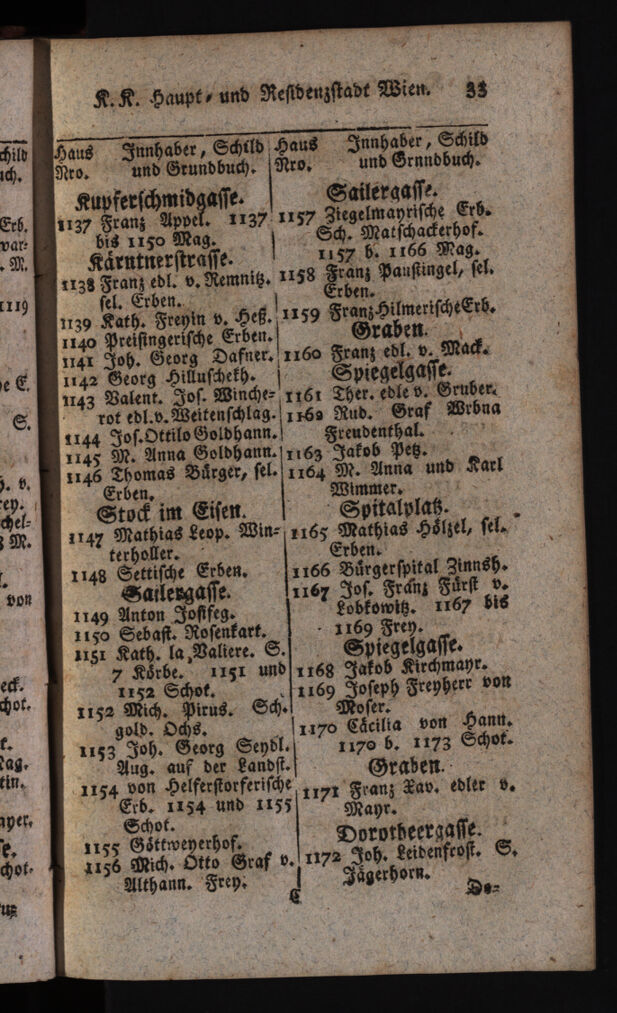 K. K. Haupt- und Residenzstadt Wien. 33
Haus Innhaber, Schild
Nro. und Grundbuch.
Kupferschmidgasse.
1137 Franz Appel. 1137
bis 1150 Mag.
Kärntnerstrasse.
1138 Franz edl. v. Remnitz.
sel. Erben.
1139 Kath. Freyin v. Heß.
1140 Preisingerische Erben.
1141 Joh. Georg Dafner.
1142 Georg Hilluschekh.
1143 Valent. Jos. Winche-
rot edl. v. Weitenschlag.
1144 Jos. Ottilo Goldhann.
1145 M. Anna Goldhann.
1146 Thomas Bürger, sel.
Erben.
Stock im Eisen.
1147 Mathias Leop. Win-
terholler.
1148 Settische Erben.
Sailergasse.
1149 Anton Jostfeg.
1150 Sebast. Rosenkart.
1151 Kath. la Valiere. S.
7 Körbe. 1151 und
1152 Schot.
1152 Mich. Pirus. Sch.
gold. Ochs.
1153 Joh. Georg Seydl.
Aug. auf der Landst.
1154 von Helferstorferische
Erb. 1154 und 1155
Schot.
1155 Göttweyerhof.
1156 Mich. Otto Graf v.
Althann. Frey.
Haus Innhaber, Schild
Nro. und Grnndbuch.
Sailergasse.
1157 Ziegelmayrische Erb.
Sch. Matschackerhof.
1157 b. 1166 Mag.
1158 Franz Paustingel, sel.
Erben.
1159 Franz Hilmerische Erb.
Graben.
1160 Franz edl. v. Mack.
Spiegelgasse.
1161 Ther. edle v. Gruber.
1162 Rud. Graf Wrbna
Freudenthal.
1163 Jakob Petz.
1164 M. Anna und Karl
Wimmer.
Spitalplatz.
1165 Mathias Hölzel, sel.
Erben.
1166 Bürgerspital Zinnsh.
1167 Jos. Franz Fürst v.
Lobkowitz. 1167 bis
1169 Frey.
Spiegelgasse.
1168 Jakob Kirchmayr.
1169 Joseph Freyherr von
Moser.
1170 Cäcilia von Hann.
1170 b. 1173 Schot.
Graben.
1171 Franz Xav. edler v.
Mayr.
Dorotheergasse.
1172 Joh. Leidenfrost. S.
Jägerhorn.
C Do-